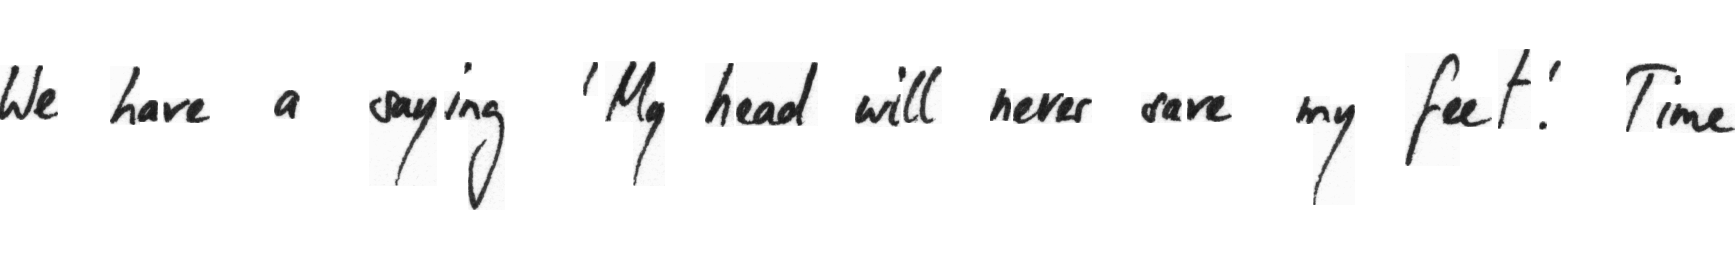 We have a saying 'My head will never save my feet'. Time